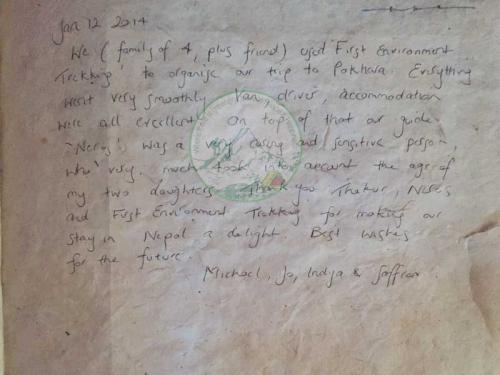 Jan 12 2014
We (family of 4, plus friend) used 'First Environment
Trekking' to organise our trip to Pokhara. Everything
went very smoothly. Van, driver, accommodation
were all excellent. On top of that our guide
'Neros' was a very caring and sensitive person,
who very much took into account the age of
my two daughters. Thank you Thakur, Neros
and First Environment Trekking for making our
stay in Nepal a delight. Best wishes
for the future.
Michael, Jo, Indja & Saffron